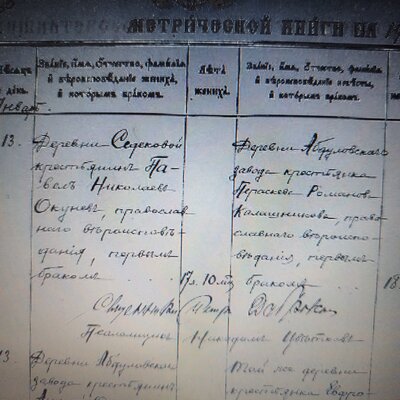 МЕТРИЧЕСКОЙ КНИГИ НА
Званіе, имя, отчество, фамилія
и вѣроисповѣданіе жениха,
и которымъ бракомъ.
Лѣта
жениха.
Званіе, имя, отчество, фамилія
и вѣроисповѣданіе невѣсты,
и которымъ бракомъ.
Январь
13.
Деревни
крестьянинъ Па-
велъ Николаевъ
Окуневъ, православ-
наго вѣроисповѣ-
данія, первымъ
бракомъ
17 л. 10 м.
Деревни Абдуловскаго
завода крестьянка
Параскева Романова
Калашникова, право-
славнаго вѣроиспо-
вѣданія, первымъ
бракомъ
18
Священникъ Петръ
Псаломщикъ Никодимъ
13
Деревни Абдуловскаго
завода крестьянинъ
Той же деревни
крестьянка Евдро-